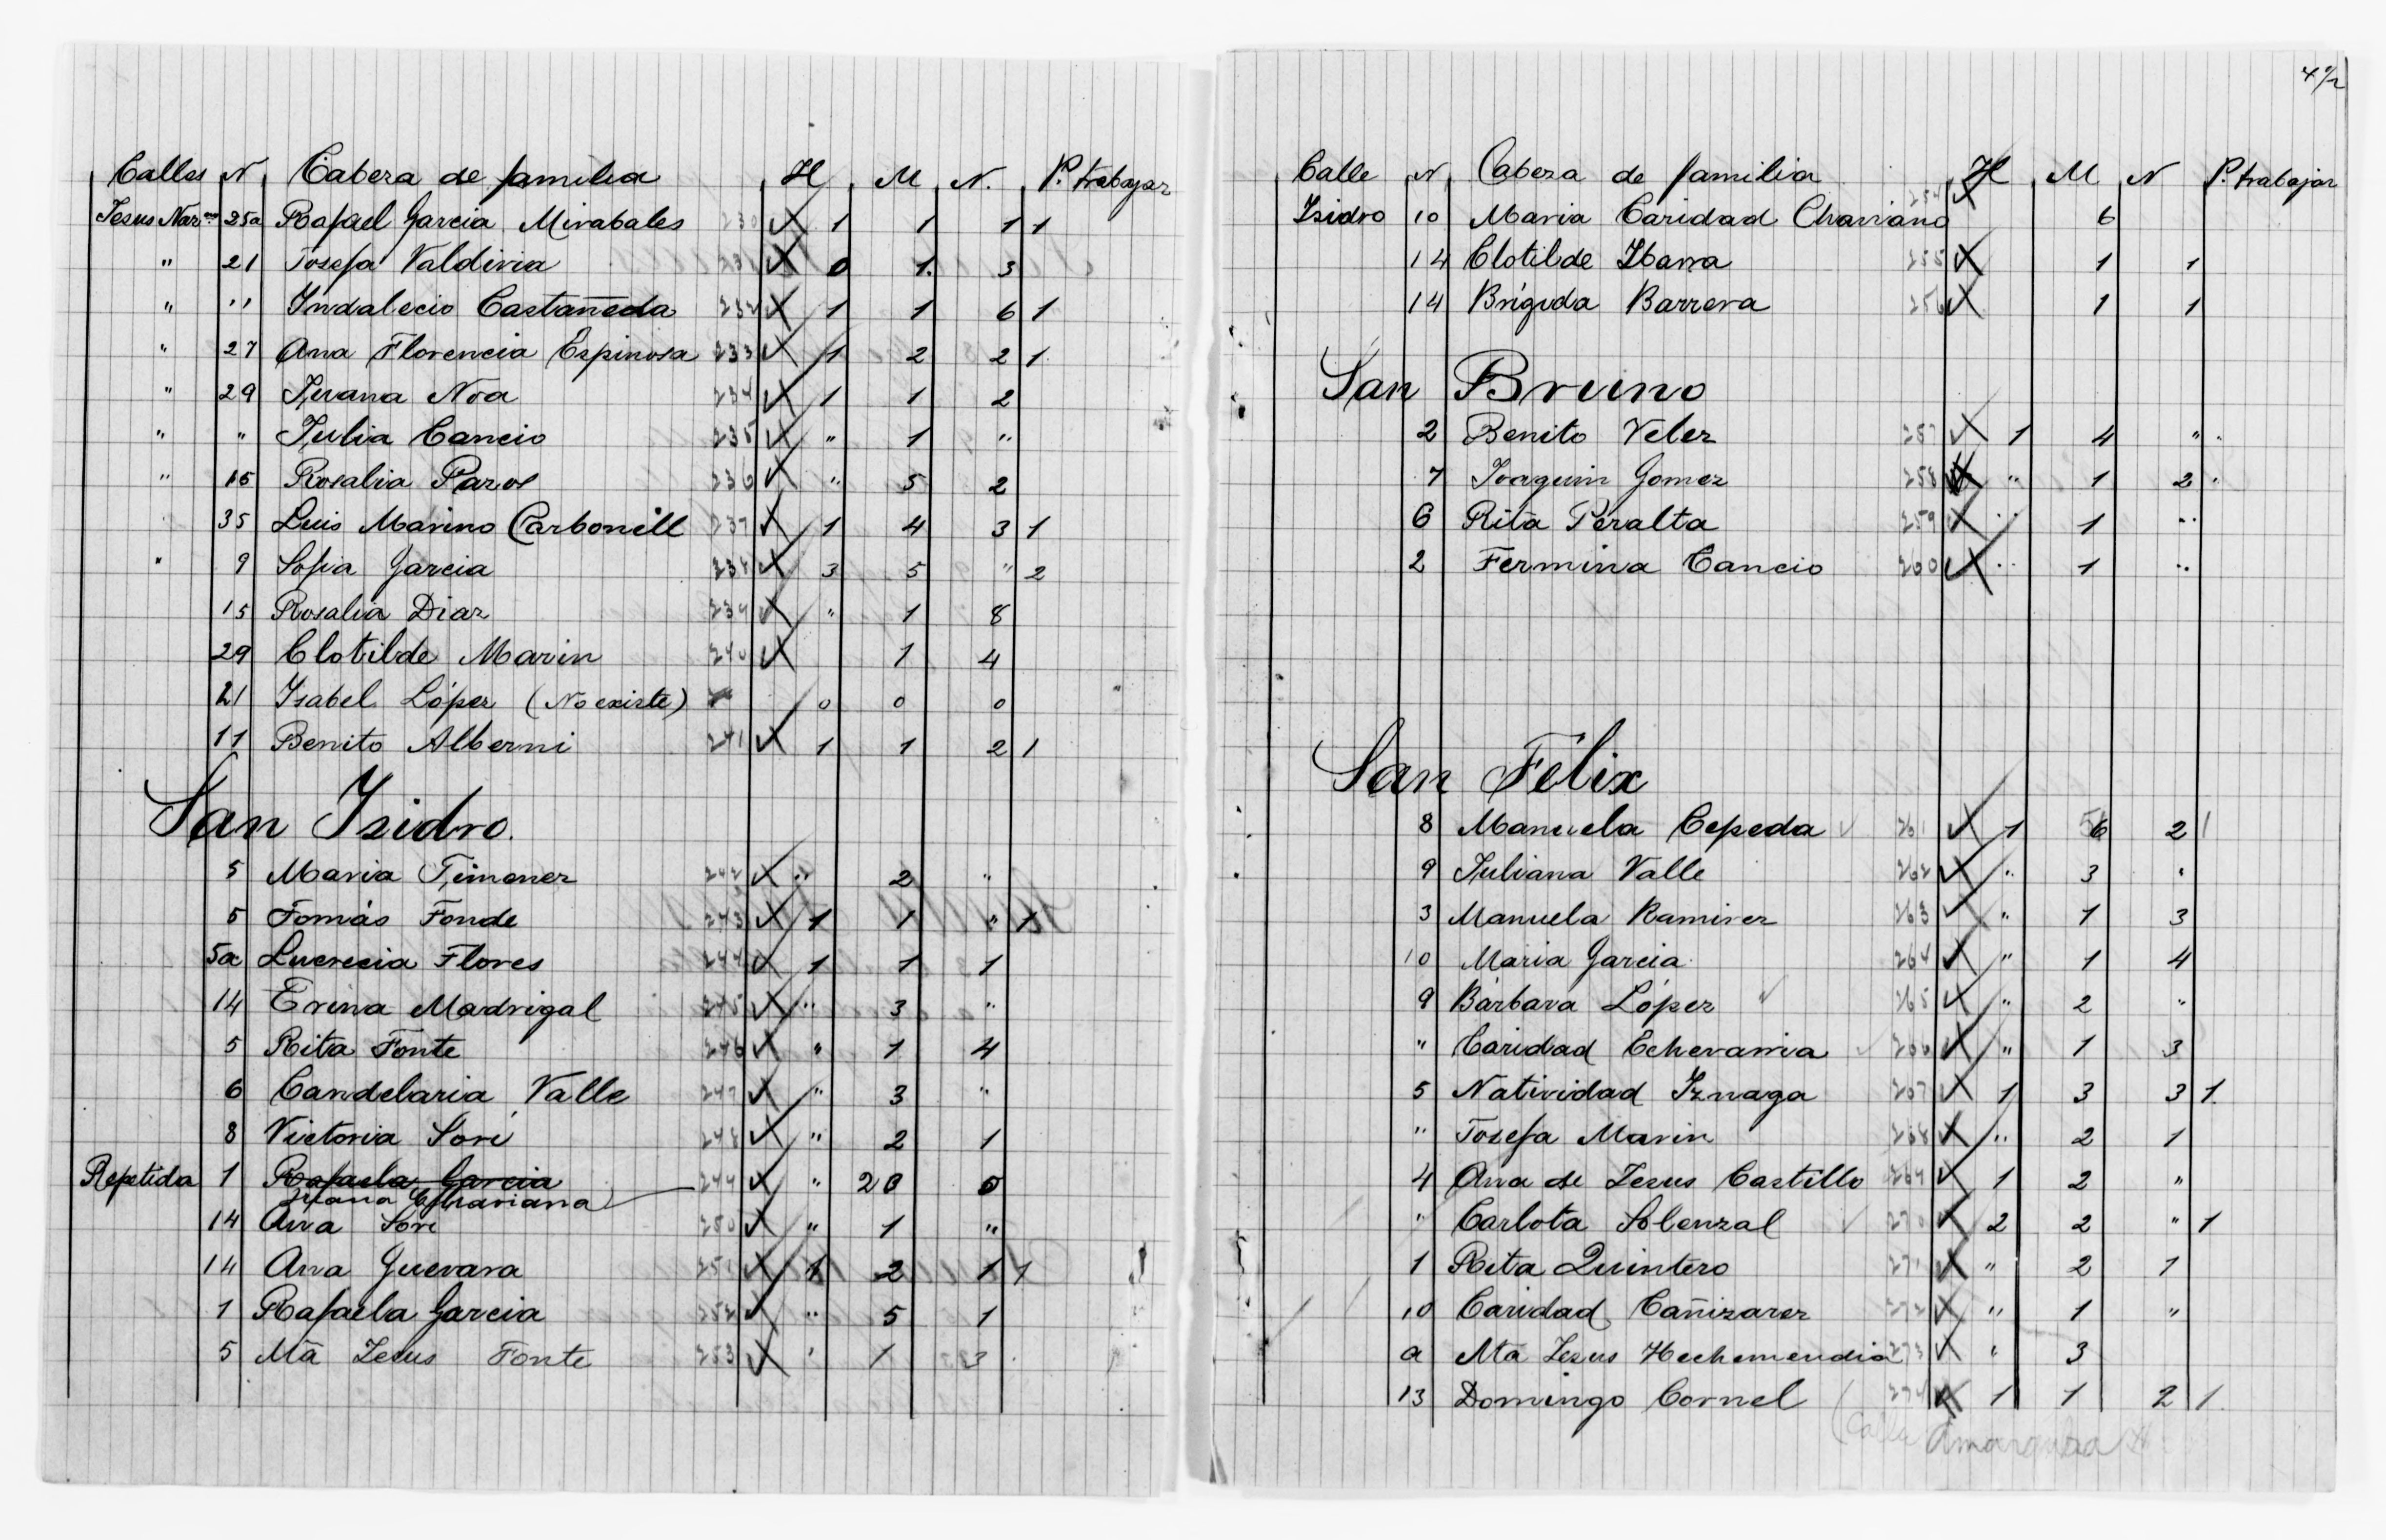 Calles N. Cabeza de familia H M N. P. trabajar
Jesus Nar^no 25a Rafael Garcia Mirabales 230 1 1 1 1
" 21 Josefa Valdivia 231 0 1. 3
" " Indalecio Castañeda 232 1 1 6 1
" 27 Ana Florencia Espinosa 233 1 2 2 1
" 29 Juana Noa 234 1 1 2
" " Julia Cancio 235 " 1 "
" 15 Rosalia Pazos 236 " 5 2
35 Luis Marino Carbonill 237 1 4 3 1
" 9 Sofia Garcia 238 3 5 " 2
15 Rosalia Diaz 239 " 1 8
29 Clotilde Marin 240 1 4
21 Isabel López (No existe) 0 0 0
11 Benito Alberni 241 1 1 2 1
San Isidro.
5 Maria Jimenez 242 " 2 "
5 Tomás Fonde 243 1 1 " 1
5a Lucrecia Flores 244 1 1 1
14 Trina Madrigal 245 " 3 "
5 Rita Fonte 246 " 1 4
6 Candelaria Valle 247 " 3 "
8 Victoria Sori 248 " 2 1
Repetida 1 Rafaela Garcia 249 " 20 0
Juana Chaviana
14 Ana Sori 250 " 1 "
14 Ana Guevara 251 1 2 1 1
1 Rafaela Garcia 252 " 5 1
5 Mª Jesus Fonte 253 " 1 3
4 1/2
Calle N. Cabeza de familia H M N P. trabajar
Isidro 10 Maria Caridad Chaviano 254 6
14 Clotilde Ibarra 255 1 1
14 Brígida Barrera 256 1 1
San Bruno
2 Benito Velez 257 1 4 " "
7 Joaquin Gomez 258 " 1 2 "
6 Rita Peralta 259 " 1 "
2 Fermina Cancio 260 " 1 "
San Félix
8 Manuela Cepeda 261 1 6 2 1
9 Juliana Valle 262 " 3 "
3 Manuela Ramirez 263 " 1 3
10 Maria Garcia 264 " 1 4
9 Bárbara López 265 " 2 "
" Caridad Echevarria 266 " 1 3
5 Natividad Iznaga 267 1 3 3 1.
" Josefa Marin 268 " 2 1
4 Ana de Jesus Castillo 269 1 2 "
" Carlota Solenzal 270 2 2 " 1
1 Rita Quintero 271 " 2 1
10 Caridad Cañizarez 272 " 1 "
a Mª Jesus Hechemendia 273 " 3
13 Domingo Cornel 274 1 1 2 1.
(Calle Amargura